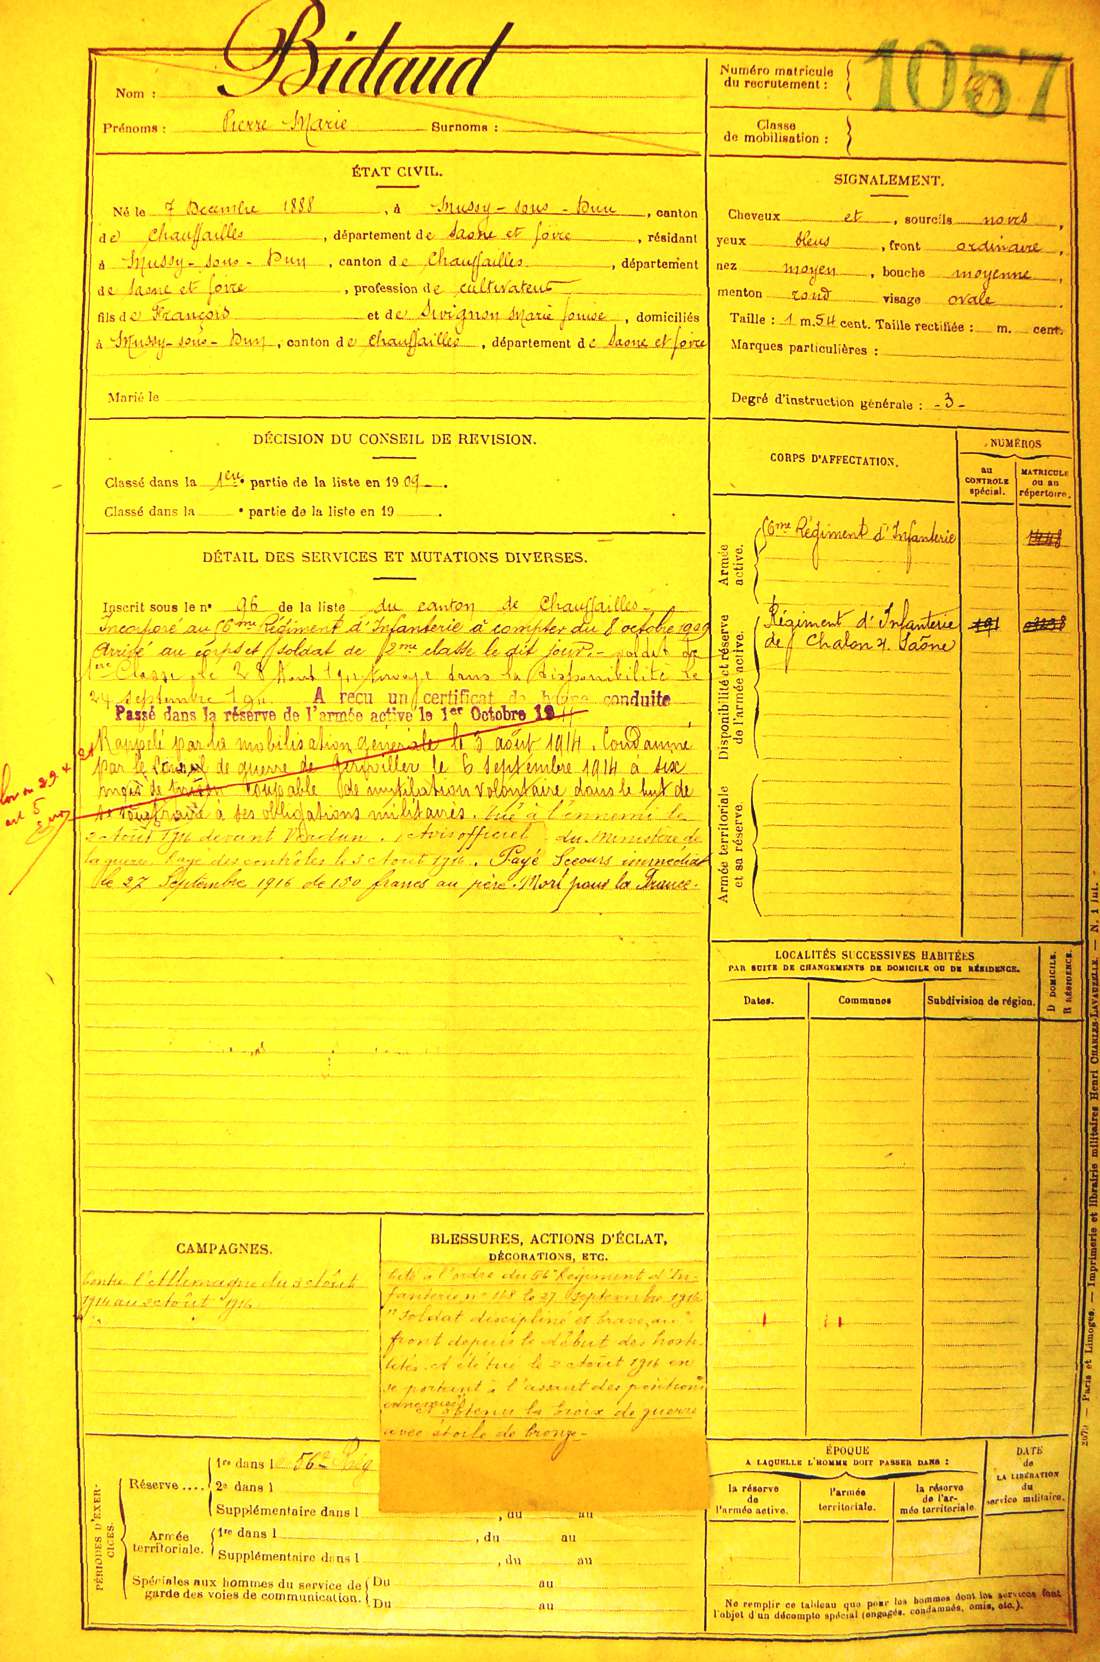 Nom : Bidaud
Prénoms : Pierre Marie Surnoms :
Numéro matricule du recrutement : 1057
Classe de mobilisation :
ÉTAT CIVIL.
Né le 7 Décembre 1888, à Mussy-sous-Dun, canton
de Chauffailles, département de Saône et Loire, résidant
à Mussy-sous-Dun, canton de Chauffailles, département
de Saône et Loire, profession de cultivateur
fils de François et de Sivignon Marie Louise, domiciliés
à Mussy-sous-Dun, canton de Chauffailles, département de Saône et Loire
Marié le
SIGNALEMENT.
Cheveux et, sourcils noirs,
yeux bleus, front ordinaire,
nez moyen, bouche moyenne,
menton rond visage ovale
Taille : 1 m. 54 cent. Taille rectifiée : m. cent.
Marques particulières :
Degré d'instruction générale : -3-
DÉCISION DU CONSEIL DE REVISION.
Classé dans la 1ere partie de la liste en 1909.
Classé dans la • partie de la liste en 19 .
DÉTAIL DES SERVICES ET MUTATIONS DIVERSES.
Inscrit sous le n° 96 de la liste du canton de Chauffailles-
Incorporé au 56me Régiment d'Infanterie à compter du 8 octobre 1909
Arrivé au corps et soldat de 2me classe le dit jour.- soldat de
1ere Classe le 28 Août 1911 Envoyé dans la disponibilité le
24 septembre 1911 A reçu un certificat de bonne conduite
Passé dans la réserve de l'armée active le 1er Octobre 1911
Rappelé par la mobilisation générale le 3 août 1914. Condamné
par le Conseil de guerre de Gerbviller le 6 Septembre 1914 à six
de coupable de mutilation volontaire dans le but de
se soustraire à ses obligations militaires. Tué à l'ennemi le
2 Août 1916 devant Verdun. Avis officiel du Ministère de
la guerre. Rayé des contrôles le 3 Août 1916. Payé Secours immédiat
le 27 Septembre 1916 de 150 francs au père. Mort pour la France.
CORPS D'AFFECTATION.
NUMÉROS
au CONTROLE spécial.
MATRICULE ou au répertoire.
Armée active.
56me Régiment d'Infanterie
Disponibilité et réserve de l'armée active.
Régiment d'Infanterie
de Chalon s. Saône
Armée territoriale et sa réserve.
LOCALITÉS SUCCESSIVES HABITÉES
PAR SUITE DE CHANGEMENTS DE DOMICILE OU DE RÉSIDENCE.
Dates. Communes Subdivision de région.
D DOMICILE.
R RÉSIDENCE.
CAMPAGNES.
Contre l'Allemagne du 3 Août
1914 au 2 Août 1916
BLESSURES, ACTIONS D'ÉCLAT,
DÉCORATIONS, ETC.
Cité à l'ordre du 56e Régiment d'In-
fanterie n° 118 le 27 Septembre 1916
"Soldat discipliné et brave, au
front depuis le début des hosti-
lités. A été tué le 2 Août 1916 en
se portant à l'assaut des positions
ennemies"
A obtenu la Croix de guerre
avec étoile de bronze-
PÉRIODES D'EXERCICES.
Réserve....
1re dans l 56e Rég
2e dans l
Supplémentaire dans l , du au
Armée territoriale.
1re dans l , du au
Supplémentaire dans l , du au
Spéciales aux hommes du service de garde des voies de communication.
Du au
Du au
ÉPOQUE
A LAQUELLE L'HOMME DOIT PASSER DANS :
la réserve de l'armée active.
l'armée territoriale.
la réserve de l'armée territoriale.
DATE de LA LIBÉRATION du service militaire.
Ne remplir ce tableau que pour les hommes dont les services font
l'objet d'un décompte spécial (engagés, condamnés, omis, etc.).
2079 — Paris et Limoges. — Imprimerie et librairie militaires Henri CHARLES-LAVAUZELLE. — N. 1 Jul.